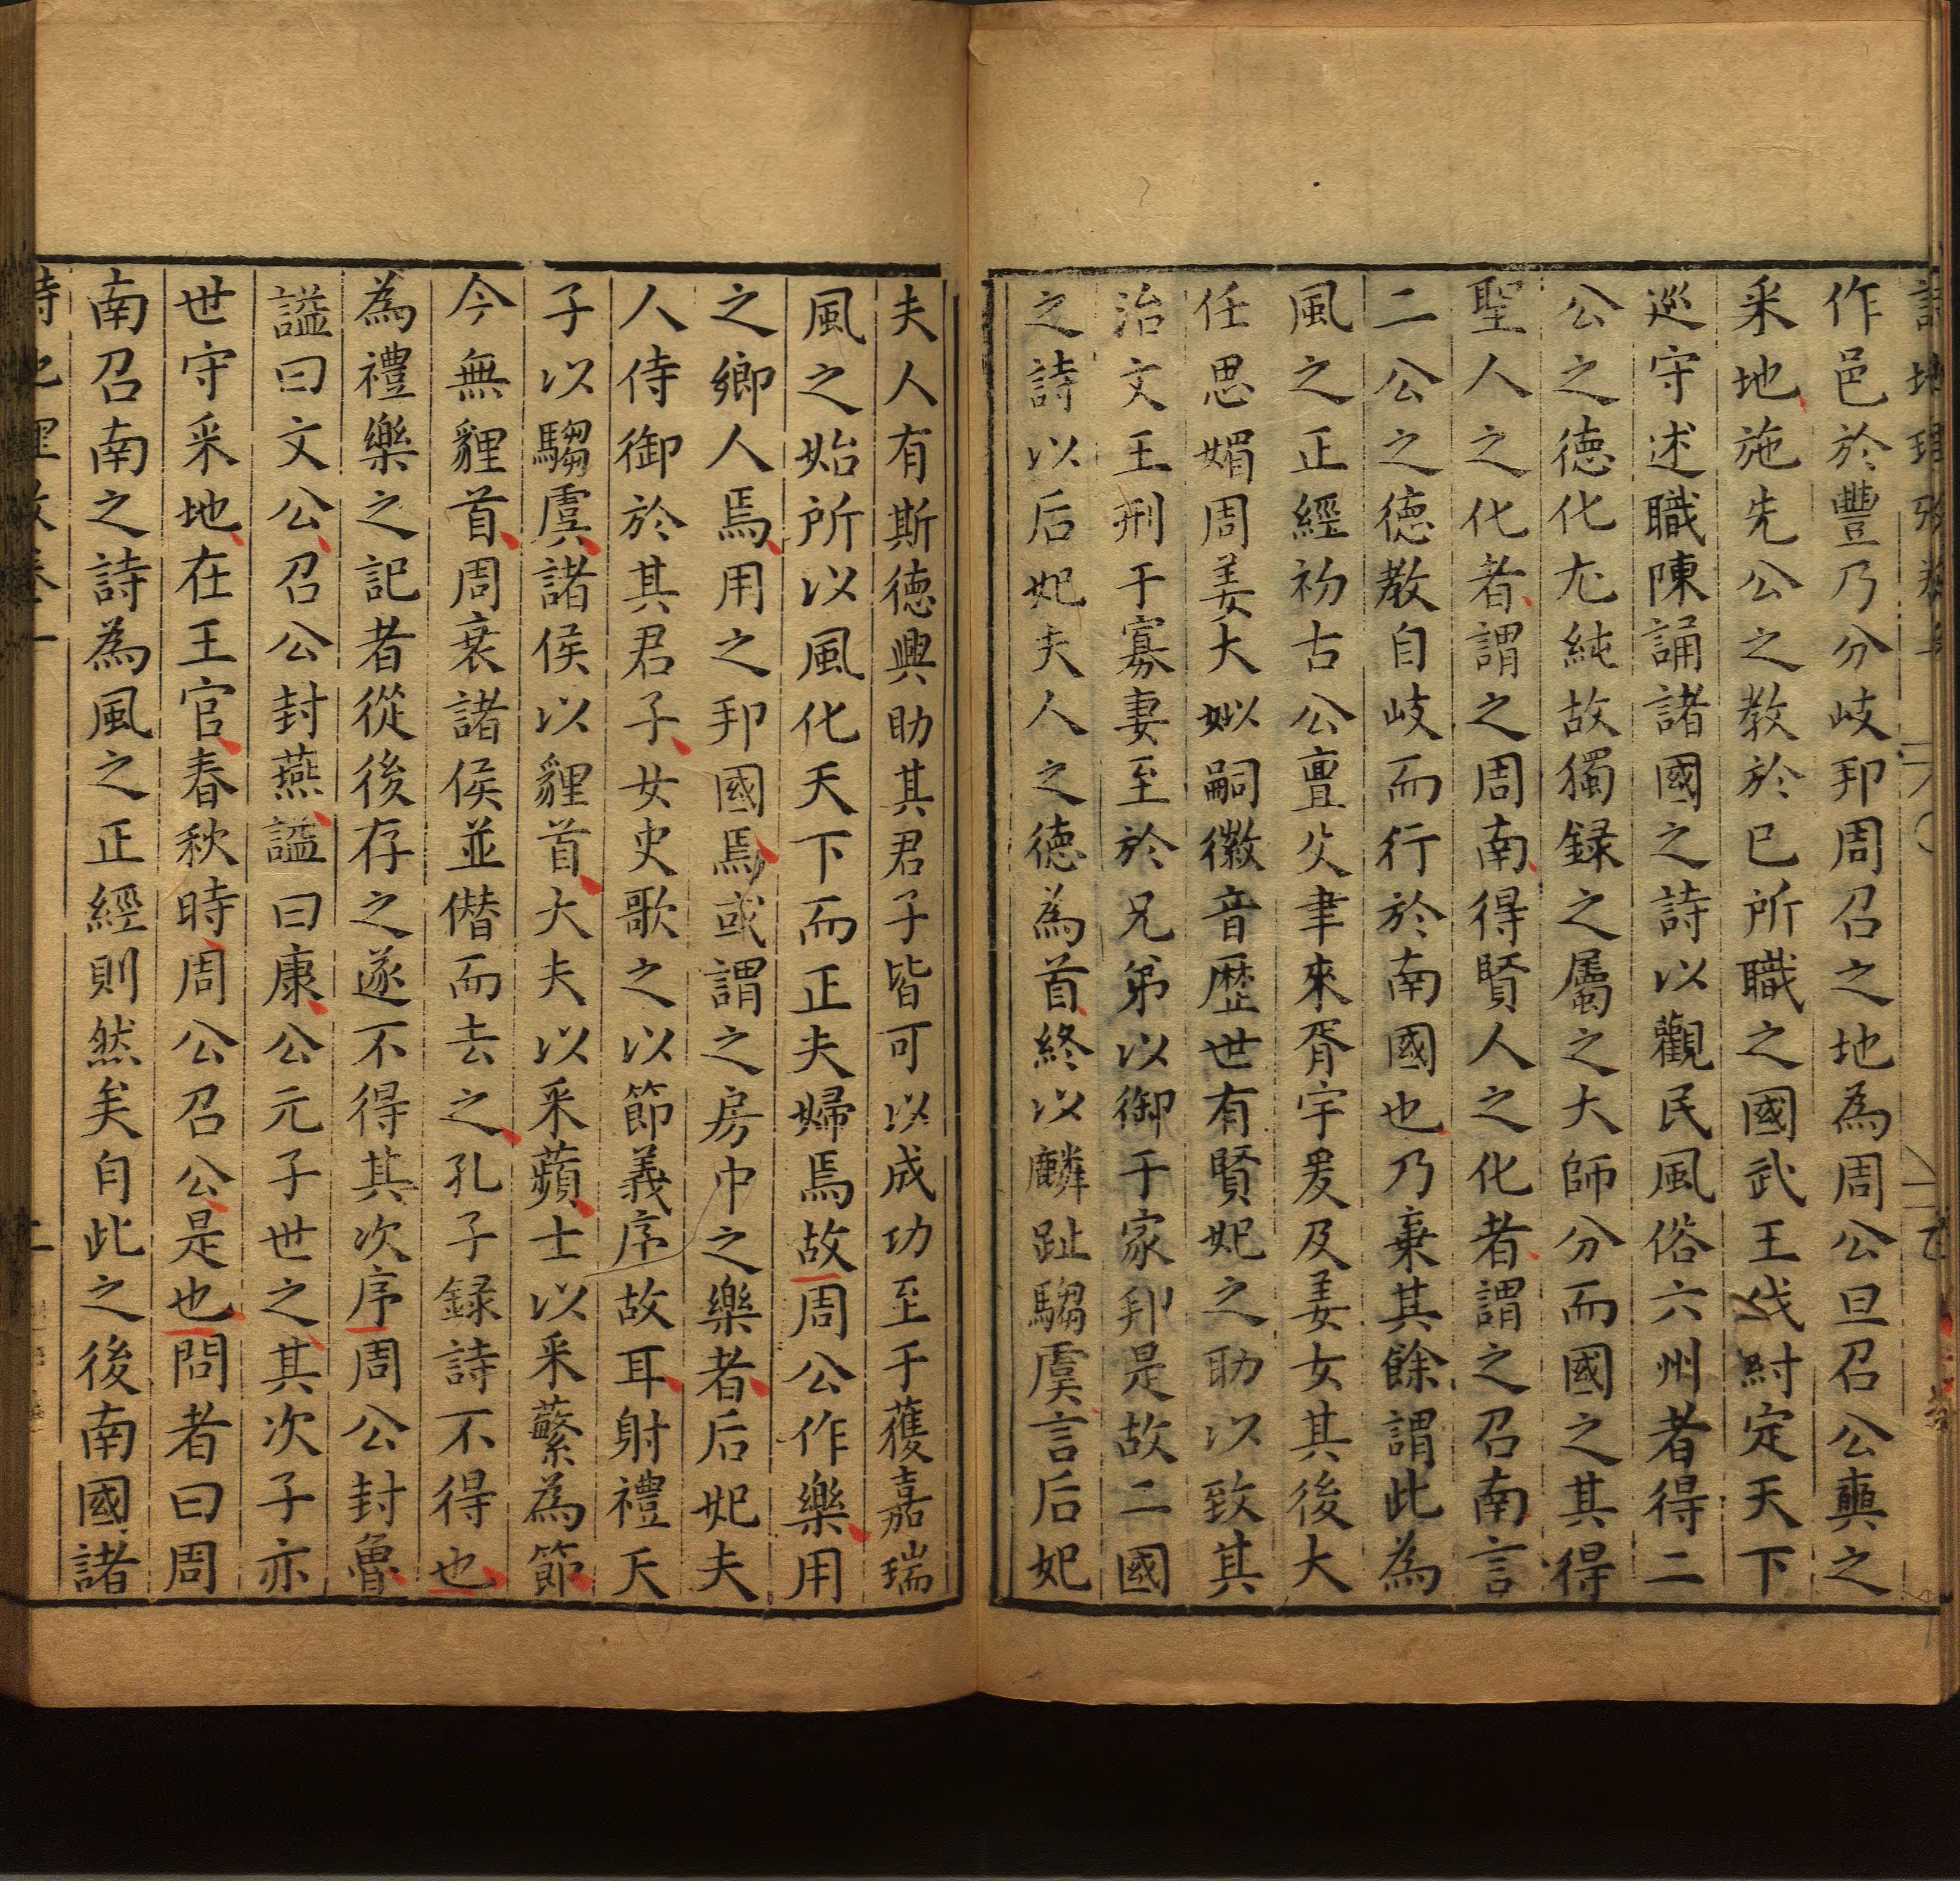 作邑於豐乃分岐邦周召之地為周公旦召公奭之
采地施先公之教於己所職之國武王伐紂定天下
巡守述職陳誦諸國之詩以觀民風俗六州者得二
公之德化尤純故獨録之屬之大師分而國之其得
聖人之化者謂之周南得賢人之化者謂之召南言
二公之德教自岐而行於南國也乃棄其餘謂此為
風之正經初古公亶父聿來胥宇爰及姜女其後大
任思媚周姜大姒嗣徽音歴世有賢妃之助以致其
治文王刑于寡妻至於兄弟以御于家邦是故二國
之詩以后妃夫人之德為首終以麟趾騶虞言后妃
夫人有斯德興助其君子皆可以成功至于獲嘉瑞
風之始所以風化天下而正夫婦焉故周公作樂用
之鄉人焉用之邦國焉或謂之房中之樂者后妃夫
人侍御於其君子女史歌之以節義序故耳射禮天
子以騶虞諸侯以貍首大夫以采蘋士以采蘩為節
今無貍首周衰諸侯並僭而去之孔子録詩不得也
為禮樂之記者從後存之遂不得其次序周公封魯
謚曰文公召公封燕謚曰康公元子世之其次子亦
世守采地在王官春秋時周公召公是也問者曰周
南召南之詩為風之正經則然矣自此之後南國諸